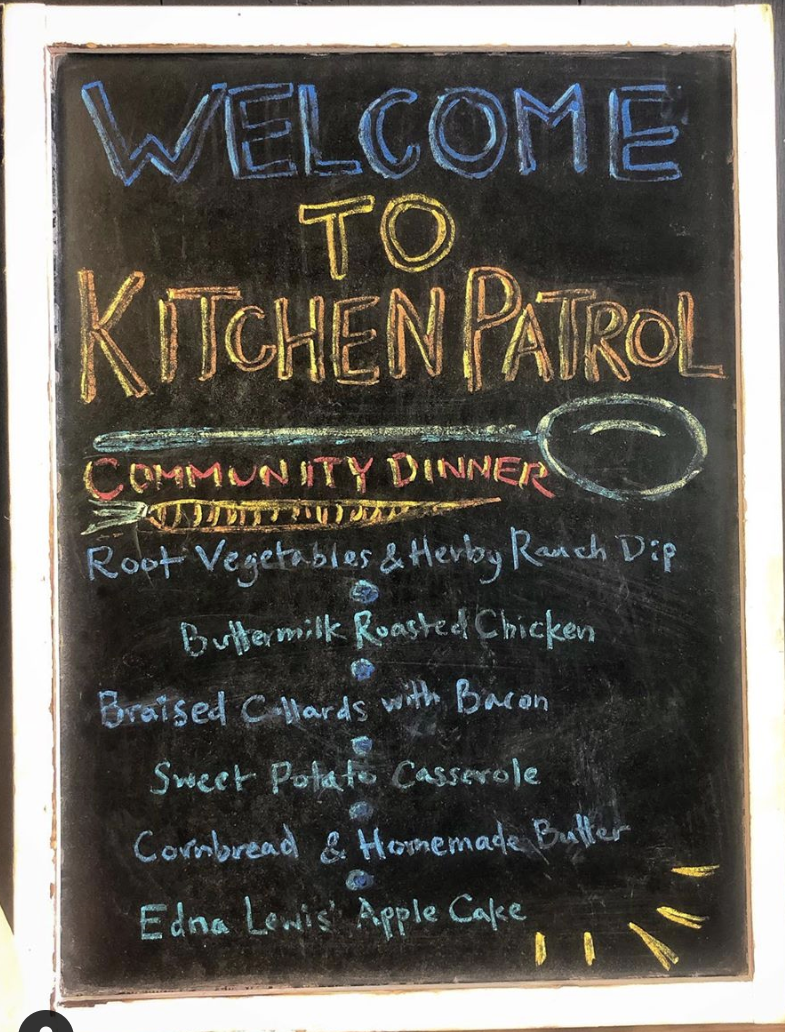 WELCOME
TO
KITCHEN PATROL
COMMUNITY DINNER
Root Vegetables & Herby Ranch Dip
Buttermilk Roasted Chicken
Braised Collards with Bacon
Sweet Potato Casserole
Cornbread & Homemade Butter
Edna Lewis' Apple Cake